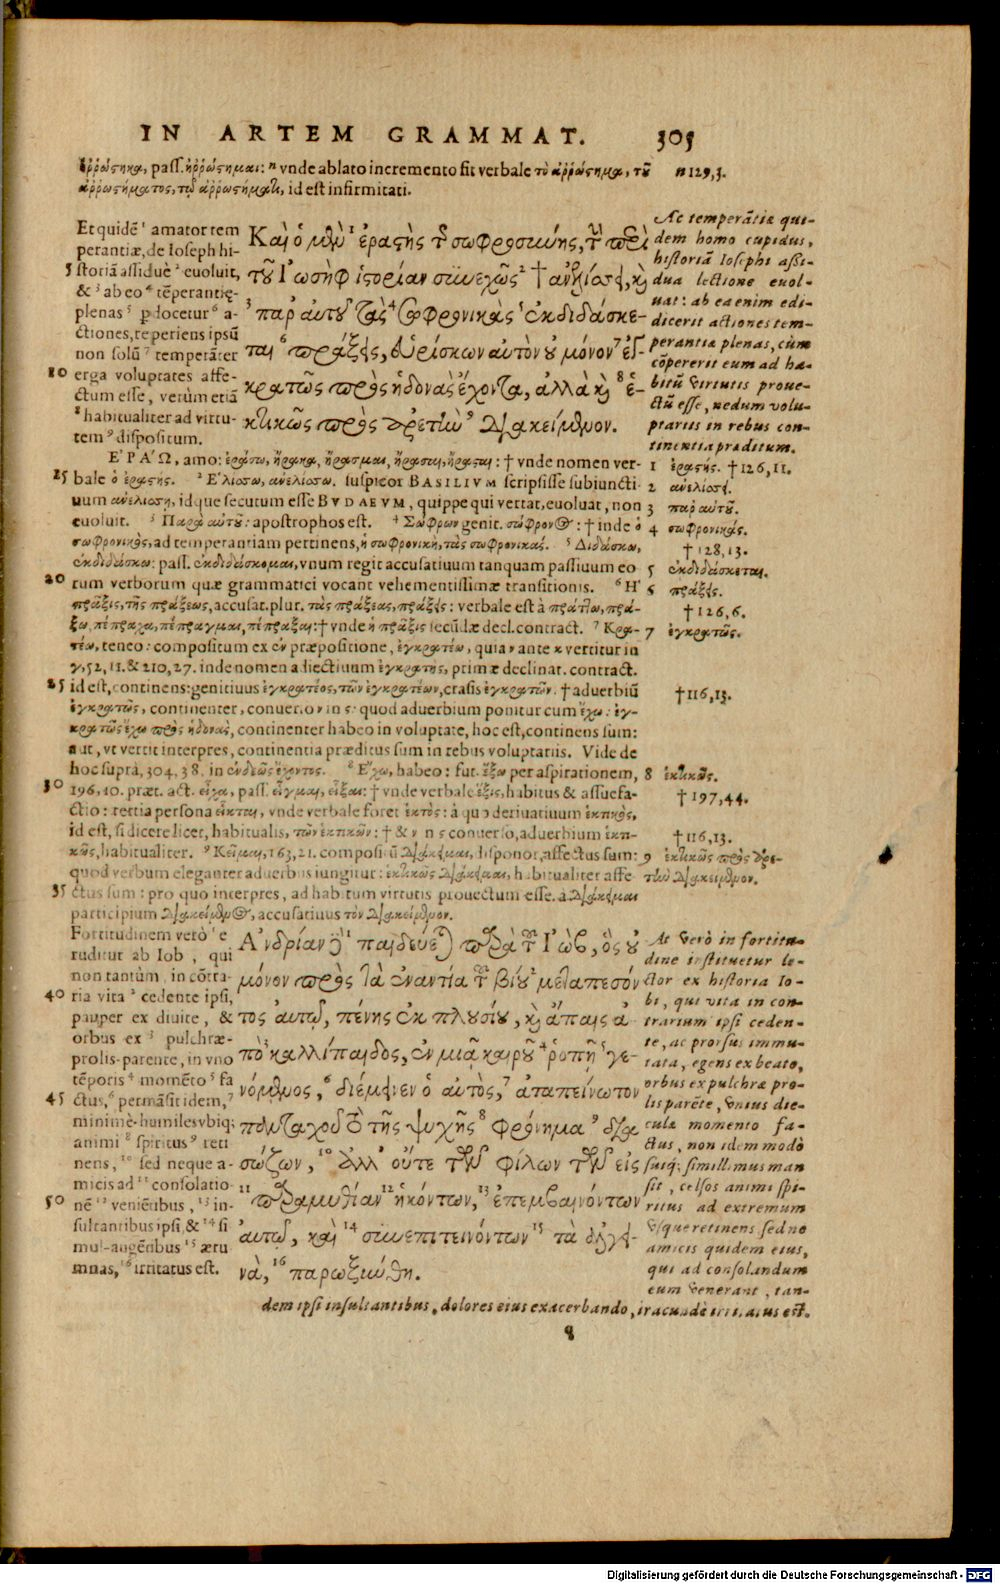 IN ARTEM GRAMMAT. 305
ἠῤῥώςηκα, pass. ἠῤῥώςημαι: ⁿ vnde ablato incremento fit verbale τὸ ἀῤῥώςημα, τοῦ
ἀῤῥωςήματος, τῷ ἀῤῥωςήματι, id est infirmitati.
n 129, 3.
Et quidẽ ¹ amator tem
perantiæ, de Ioseph hi-
5 storiã assiduè ² euoluit,
& ³ ab eo ⁴ tẽperantię
plenas ⁵ ꝑdocetur ⁶ a-
ctiones, reperiens ipsũ
non solũ ⁷ temperãter
10 erga voluptates affe-
ctum esse, verùm etiã
⁸ habitualiter ad virtu-
tem ⁹ dispositum.
Καὶ ὁ μὲν ¹ ἐραςὴς τῆς σωφροσύνης, τὴν περὶ
τοῦ Ἰωσὴφ ἱςορίαν συνεχῶς ² † ἀνελίσσει, καὶ
³ παρ' αὐτοῦ τὰς ⁴ σωφρονικὰς ⁵ ἐκδιδάσκε-
ται ⁶ πράξεις, εὑρίσκων αὐτὸν οὐ μόνον ⁷ ἐγ-
κρατῶς πρὸς ἡδονὰς ἔχοντα, ἀλλὰ καὶ ⁸ ἑ-
κτικῶς πρὸς ἀρετὴν ⁹ διακείμενον.
Ac temperãtiæ qui-
dem homo cupidus,
historiã Iosephi aßi-
dua lectione euol-
uat: ab ea enim edi-
dicerit actiones tem-
perantiæ plenas, cùm
cõpererit eum ad ha-
bitũ virtutis proue-
ctũ esse, nedum volu-
ptariis in rebus con-
tinentia præditum.
ΕʹΡΑʹΩ, amo: ἐράσω, ἤρακα, ἤρασμαι, ἤρασαι, ἤραςαι: † vnde nomen ver-
15 bale ὁ ἐραςής. ² Ἑλίσσω, ἀνελίσσω. suspicor BASILIVM scripsisse subiuncti-
uum ἀνελίσσῃ, idque secutum esse BVDAEVM, quippe qui vertat, euoluat, non
euoluit. ³ Παρ' αὐτοῦ: apostrophos est. ⁴ Σώφρων genit. σώφρονος: † inde ὁ
σωφρονικὸς, ad temperantiam pertinens, ἡ σωφρονικὴ, τὰς σωφρονικάς. ⁵ Διδάσκω,
ἐκδιδάσκω: pass. ἐκδιδάσκομαι, vnum regit accusatiuum tanquam passiuum eo
20 rum verborum quæ grammatici vocant vehementissimæ transitionis. ⁶ Ἡ
πρᾶξις, τῆς πράξεως, accusat. plur. τὰς πράξεας, πράξεις: verbale est à πράττω, πρά-
ξω, πέπραχα, πέπραγμαι, πέπραξαι: † vnde ἡ πρᾶξις secũdæ decl. contract. ⁷ Κρα-
τέω, teneo: compositum ex ἐν præpositione, ἐγκρατέω, quia ν ante κ vertitur in
γ, 52, 11. & 210, 27. inde nomen adiectiuum ἐγκρατὴς, primæ declinat. contract.
25 id est, continens: genitiuus ἐγκρατέος, τῶν ἐγκρατέων, crasis ἐγκρατῶν. † aduerbiũ
ἐγκρατῶς, continenter, conuerso ν in ς: quod aduerbium ponitur cum ἔχω: ἐγ-
κρατῶς ἔχω πρὸς ἡδονὰς, continenter habeo in voluptate, hoc est, continens sum:
aut, vt vertit interpres, continentia præditus sum in rebus voluptariis. Vide de
hoc suprà, 304, 38. in ἐνδεῶς ἔχοντος. ⁸ Ἔχω, habeo: fut. ἕξω per aspirationem,
30 196, 10. præt. act. εἶχα, pass. εἶγμαι, εἶξαι: † vnde verbale ἕξις, habitus & assuefa-
ctio: tertia persona εἶκται, vnde verbale foret ἑκτὸς: à quo deriuatiuum ἑκτικὸς,
id est, si dicere licet, habitualis, τῶν ἑκτικῶν: † & ν in ς conuerso, aduerbium ἑκτι-
κῶς, habitualiter. ⁹ Κεῖμαι, 163, 21. compositũ διάκειμαι, disponor, affectus sum:
quod verbum eleganter aduerbiis iungitur: ἑκτικῶς διάκειμαι, habitualiter affe-
35 ctus sum: pro quo interpres, ad habitum virtutis prouectum esse. à διάκειμαι
participium διακείμενος, accusatiuus τὸν διακείμενον.
1 ἐραςής. † 126, 11.
2 ἀνελίσσει.
3 παρ' αὐτοῦ.
4 σωφρονικάς.
† 128, 13.
5 ἐκδιδάσκεται.
6 πράξεις.
† 126, 6.
7 ἐγκρατῶς.
† 116, 13.
8 ἑκτικῶς.
† 197, 44.
† 116, 13.
9 ἑκτικῶς πρὸς ἀρε-
τὴν διακείμενον.
Fortitudinem verò ¹ e
ruditur ab Iob, qui
non tantùm, in cõtra-
40 ria vita ² cedente ipsi,
pauper ex diuite, &
orbus ex ³ pulchræ-
prolis-parente, in vno
tẽporis ⁴ momẽto ⁵ fa
45 ctus, ⁶ permãsit idem, ⁷
minimè-humiles vbiq;
animi ⁸ spiritus ⁹ reti
nens, ¹⁰ sed neque a-
micis ad ¹¹ consolatio-
50 nẽ ¹² veniẽtibus, ¹³ in-
sultantibus ipsi, & ¹⁴ si
mul-augẽtibus ¹⁵ æru
mnas, ¹⁶ irritatus est.
Ἀνδρίαν δὲ ¹ παιδεύεται παρὰ τοῦ Ἰὼβ, ὃς οὐ
μόνον πρὸς τὰ ἐναντία τοῦ βίου ² μεταπεσόν
τος αὐτῷ, πένης ἐκ πλουσίου, καὶ ἄπαις ἀ
πὸ ³ καλλίπαιδος, ἐν μιᾷ καιροῦ ⁴ ῥοπῇ ⁵ γε-
νόμενος, ⁶ διέμεινεν ὁ αὐτὸς, ⁷ ἀταπείνωτον
πανταχοῦ τὸ τῆς ψυχῆς ⁸ φρόνημα ⁹ δια
σώζων, ¹⁰ ἀλλ' οὔτε τῶν φίλων τῶν εἰς
¹¹ παραμυθίαν ¹² ἡκόντων, ¹³ ἐπεμβαινόντων
αὐτῷ, καὶ ¹⁴ συνεπιτεινόντων ¹⁵ τὰ ἀλγει-
νὰ, ¹⁶ παρωξύνθη.
At verò in fortitu-
dine instituetur le-
ctor ex historia Io-
bi, qui vita in con-
trarium ipsi ceden-
te, ac prorsus immu-
tata, egens ex beato,
orbus ex pulchræ pro-
lis parẽte, vnius die-
culæ momento fa-
ctus, non idem modò
suiq; simillimus man
sit, celsos animi spi-
ritus ad extremum
vsque retinens sed ne
amicis quidem eius,
qui ad consolandum
eum venerant, tan-
dem ipsi insultantibus, dolores eius exacerbando, iracundè irritatus est.
q
Digitalisierung gefördert durch die Deutsche Forschungsgemeinschaft - DFG